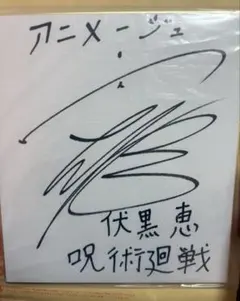 アニメージュ
伏黒 恵
呪術廻戦